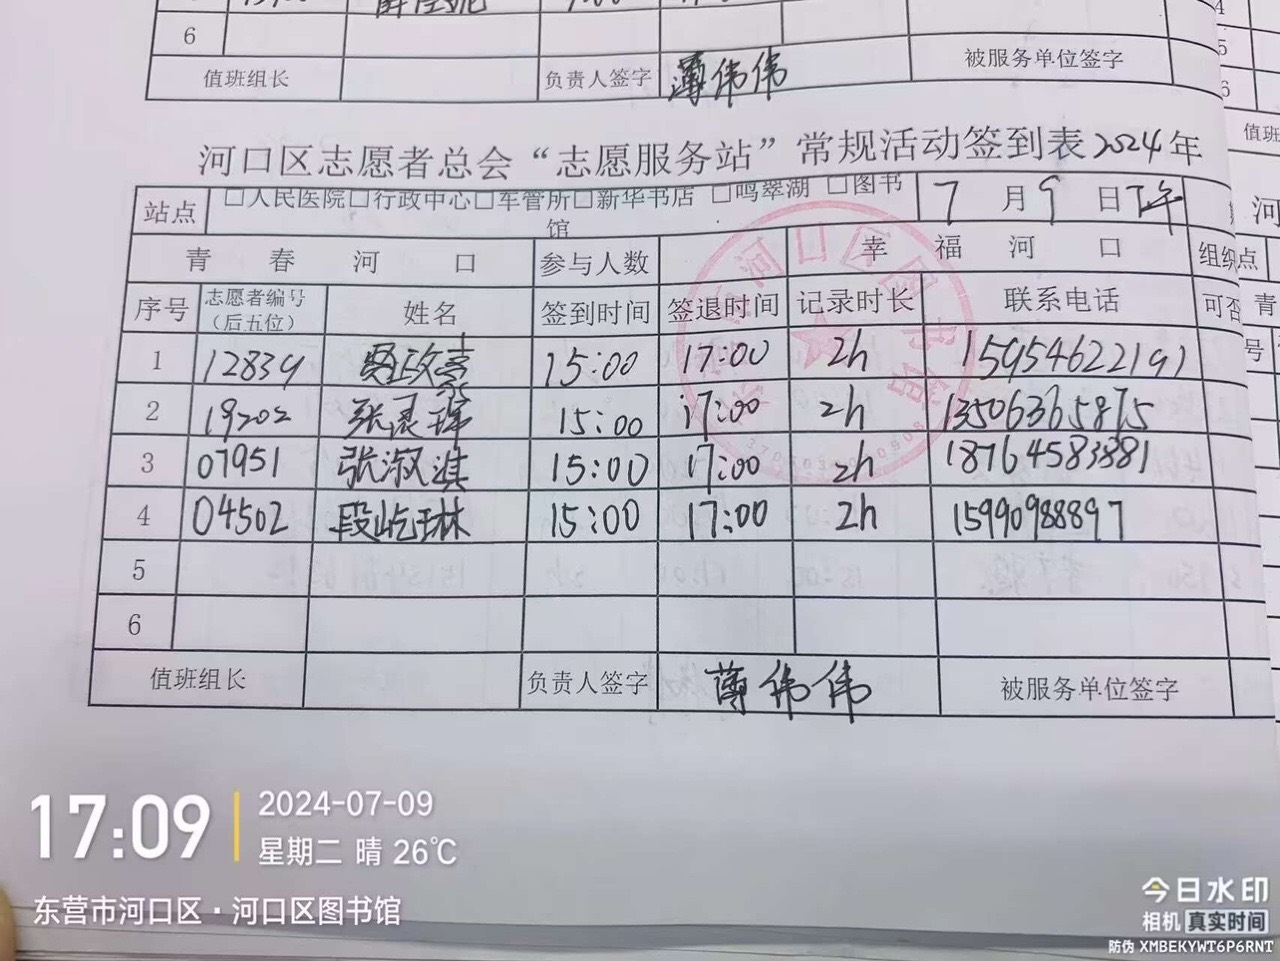 6
值班组长 负责人签字 薄伟伟 被服务单位签字
河口区志愿者总会“志愿服务站”常规活动签到表2024年
站点 □人民医院□行政中心□车管所□新华书店 □鸣翠湖 □图书馆 7月9日下午
青春河口 参与人数 幸福河口
序号 志愿者编号（后五位） 姓名 签到时间 签退时间 记录时长 联系电话
1 12839 15:00 17:00 2h 15954622191
2 19202 张 15:00 17:00 2h 13506365875
3 07951 张淑淇 15:00 17:00 2h 18764583881
4 04502 段屹琳 15:00 17:00 2h 15990988897
5
6
值班组长 负责人签字 薄伟伟 被服务单位签字
17:09
2024-07-09
星期二 晴 26℃
东营市河口区·河口区图书馆
今日水印
相机 真实时间
防伪 XMBEKYWT6P6RNT